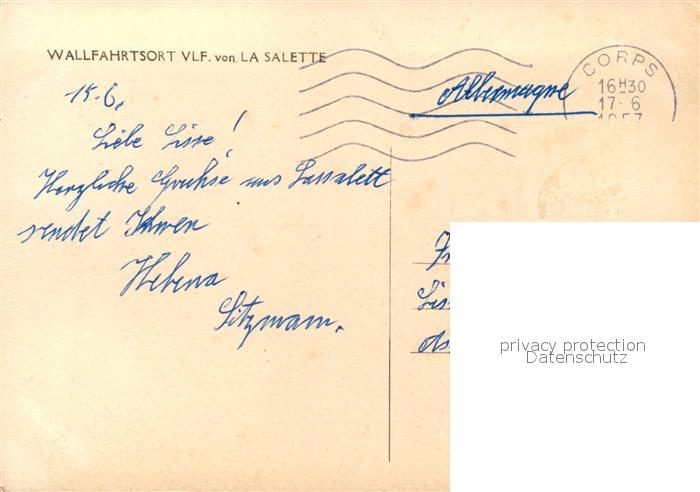 WALLFAHRTSORT VLF. von LA SALETTE
CORPS
16H30
17-6
1957
Allemagne
15-6,
Liebe Lisse!
Herzliche Grühse aus Lassalett
sendet Ihnen
Helena
Sitzmann.
privacy protection
Datenschutz